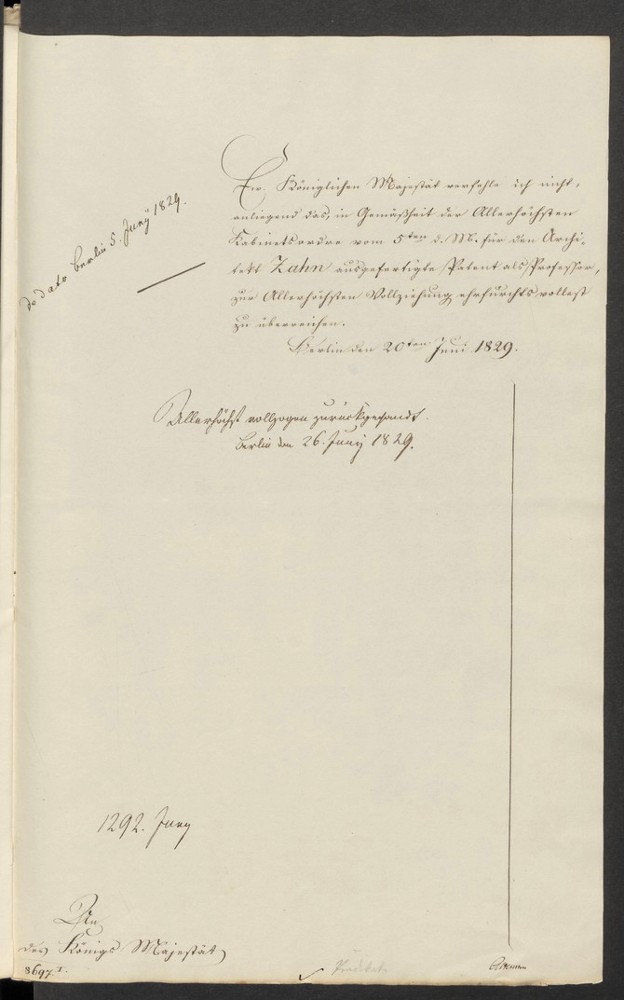 de dato Berlin 5. Juny 1829.
Ew. Königlichen Majestät verfehle ich nicht,
anliegend das, in Gemäßheit der Allerhöchsten
Kabinetsordre vom 5ten d. M. für den Archi-
tekt Zahn ausgefertigte Patent als Professor,
zur Allerhöchsten Vollziehung ehrfurchtsvollest
zu überreichen.
Berlin den 20ten Juni 1829.
Allerhöchst vollzogen zurückgesandt.
Berlin den 26. Juny 1829.
1292. Juny
An
des Königs Majestät
8697. I.